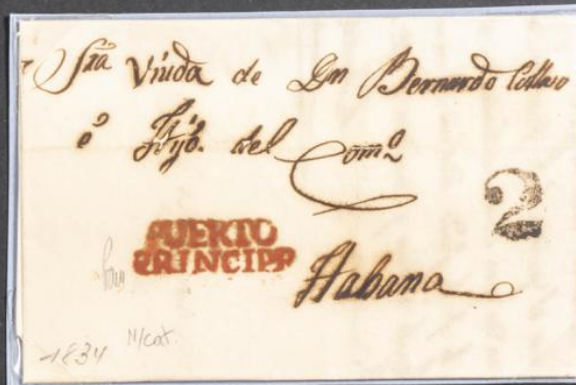 Sra Viuda de Dn Bernardo
é Hijo. del Comº
2
PUERTO
PRINCIPE
Habana
N/cat.
1834